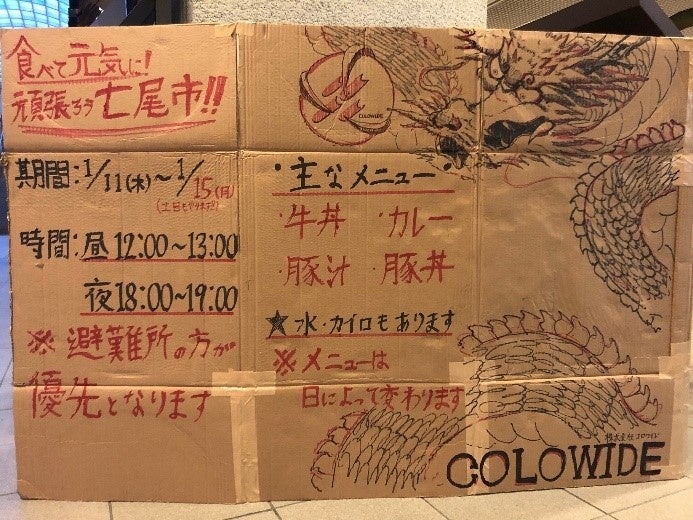 食べて元気に!
頑張ろう七尾市!!
COLOWIDE
期間:1/11(木)～1/15(月)
時間:昼12:00～13:00
夜18:00～19:00
※避難所の方が
優先となります
・主なメニュー
・牛丼 ・カレー
・豚汁 ・豚丼
★水・カイロもあります
※メニューは
日によって変わります
株式会社コロワイド
COLOWIDE